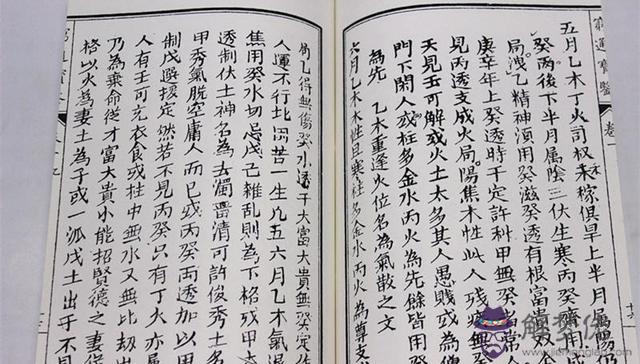 窮通寶鑑
卷一
五月乙木丁火司权禾稼俱旱上半月属陽仍用
癸丙後下半月属陰三伏生寒丙癸齊用
局洩乙精神湏用癸滋癸透有根富貴双
庚辛年上癸透時干定許科甲無癸
見丙透支成火局陽焦木性此人残疾無癸
天見壬可解或火土太多其人愚贱或為僧
門下閑人或柱多金水丙火為先餘皆用
為先　乙木重逢火位名為氣散之文
六月乙木木性且寒柱多金水丙火為尊支
乙得無傷癸水透干大富大貴無癸定作
人運不行北困苦一生凡五六月乙木氣退
焦用癸水切忌戊己雜乱則為下格残甲木
透制伏土神名為去濁留清可許俊秀土
甲秀氣脱空庸人而已或丙癸两透加以甲
制戊選拨定然若不見丙癸只有丁火亦属
人有壬可充衣食或柱中無水又無比劫出
乃為棄命從才富大貴小能招賢德之妻從
格以火為妻土為子或一派戊土出干不見
解夢佬